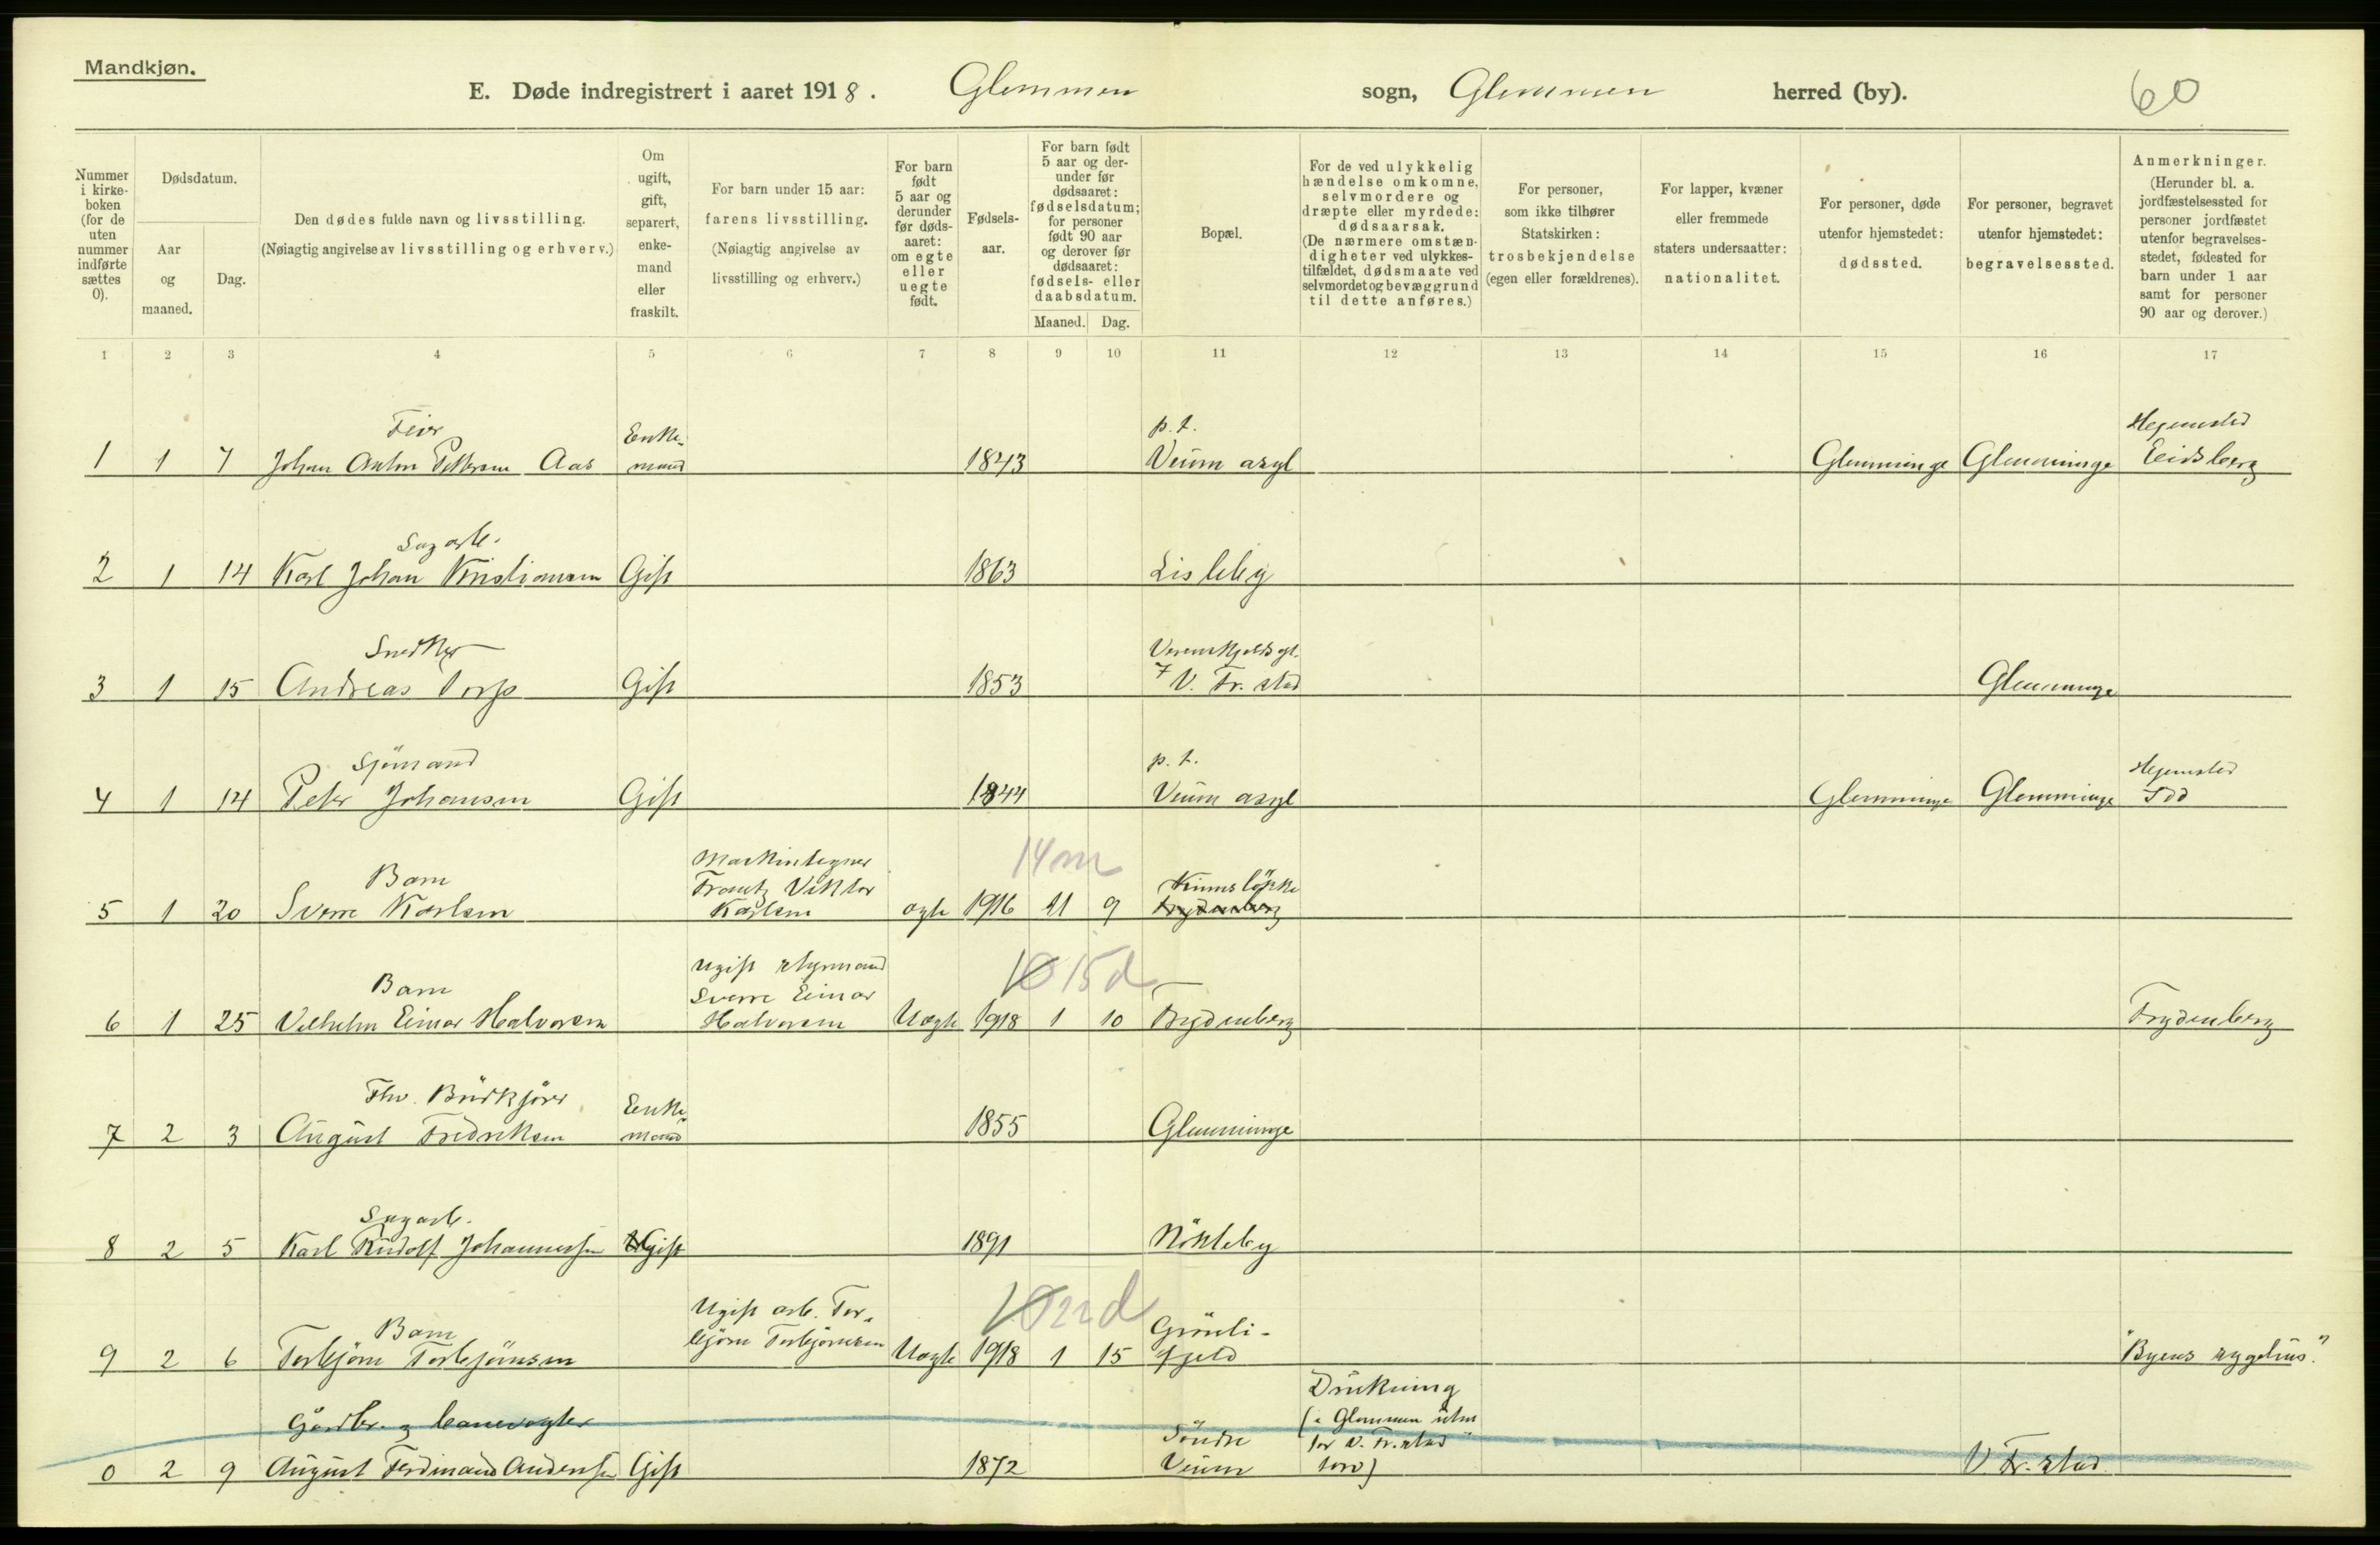 Mandkjøn.
E. Døde indregistrert i aaret 1918. Glemmen sogn, Glemmen herred (by). 60
Nummer i kirke-boken (for de uten nummer indførte sættes 0).
Dødsdatum.
Aar og maaned.
Dag.
Den dødes fulde navn og livsstilling.
(Nøiagtig angivelse av livsstilling og erhverv.)
Om ugift, gift, separert, enke-mand eller fraskilt.
For barn under 15 aar:
farens livsstilling.
(Nøiagtig angivelse av livsstilling og erhverv.)
For barn født 5 aar og derunder før døds-aaret: om egte eller uegte født.
Fødsels-aar.
For barn født 5 aar og der-under før dødsaaret: fødselsdatum; for personer født 90 aar og derover før dødsaaret: fødsels- eller daabsdatum.
Maaned. Dag.
Bopæl.
For de ved ulykkelig hændelse omkomne, selvmordere og dræpte eller myrdede: dødsaarsak.
(De nærmere omstæn-digheter ved ulykkes-tilfældet, dødsmaate ved selvmordet og bevæggrund til dette anføres.)
For personer, som ikke tilhører Statskirken: trosbekjendelse (egen eller forældrenes).
For lapper, kvæner eller fremmede staters undersaatter: nationalitet.
For personer, døde utenfor hjemstedet: dødssted.
For personer, begravet utenfor hjemstedet: begravelsessted.
Anmerkninger.
(Herunder bl. a. jordfæstelsessted for personer jordfæstet utenfor begravelses-stedet, fødested for barn under 1 aar samt for personer 90 aar og derover.)
1 2 3 4 5 6 7 8 9 10 11 12 13 14 15 16 17
Feier Enke- p. t. Hjemsted
1 1 7 Johan Anton Pettersen Aas mand 1843 Veum asyl Glemminge Glemminge Eidsberg
Sagarb.
2 1 14 Karl Johan Kristiansen Gift 1863 Lisleby
Snedker
3 1 15 Andreas Torp Gift 1853 7 V. Fr. stad Glemminge
Sjømand p. t. Hjemsted
4 1 14 Peter Johansen Gift 1844 Veum asyl Glemminge Glemminge Idd
14m
Barn Frantz Viktor
5 1 20 Sverre Karlsen Karlsen egte 1916 11 9 Frydenberg
Ugift styrmand 10 15d
Barn Sverre Einar
6 1 25 Vilhelm Einar Halvorsen Halvorsen Uegte 1918 1 10 Frydenberg Frydenberg
Fhv. Enke-
7 2 3 August Fredriksen mand 1855 Glemminge
Sagarb.
8 2 5 Karl Rudolf Johannessen Ugift 1891 Nökleby
Ugift arb. Tor- 10 22d
Barn bjørn Torbjørnsen Grönli-
9 2 6 Torbjörn Torbjörnsen Uegte 1918 1 15 fjeld "Byens sygehus"
Drukning
Gårdbr. og banevogter (i Glommen uten
Söndre for V. Fr.stad
0 2 9 August Ferdinand Andersen Gift 1872 Veum torv) V. Fr. stad.